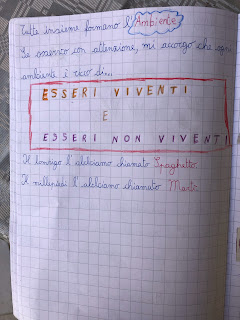 Tutte insieme formano l'Ambiente
Se osservo con attenzione, mi accorgo che ogni
ambiente è ricco di...
ESSERI VIVENTI
E
ESSERI NON VIVENTI
Il lombrico l'abbiamo chiamato Spaghetto.
Il millepiedi l'abbiamo chiamato